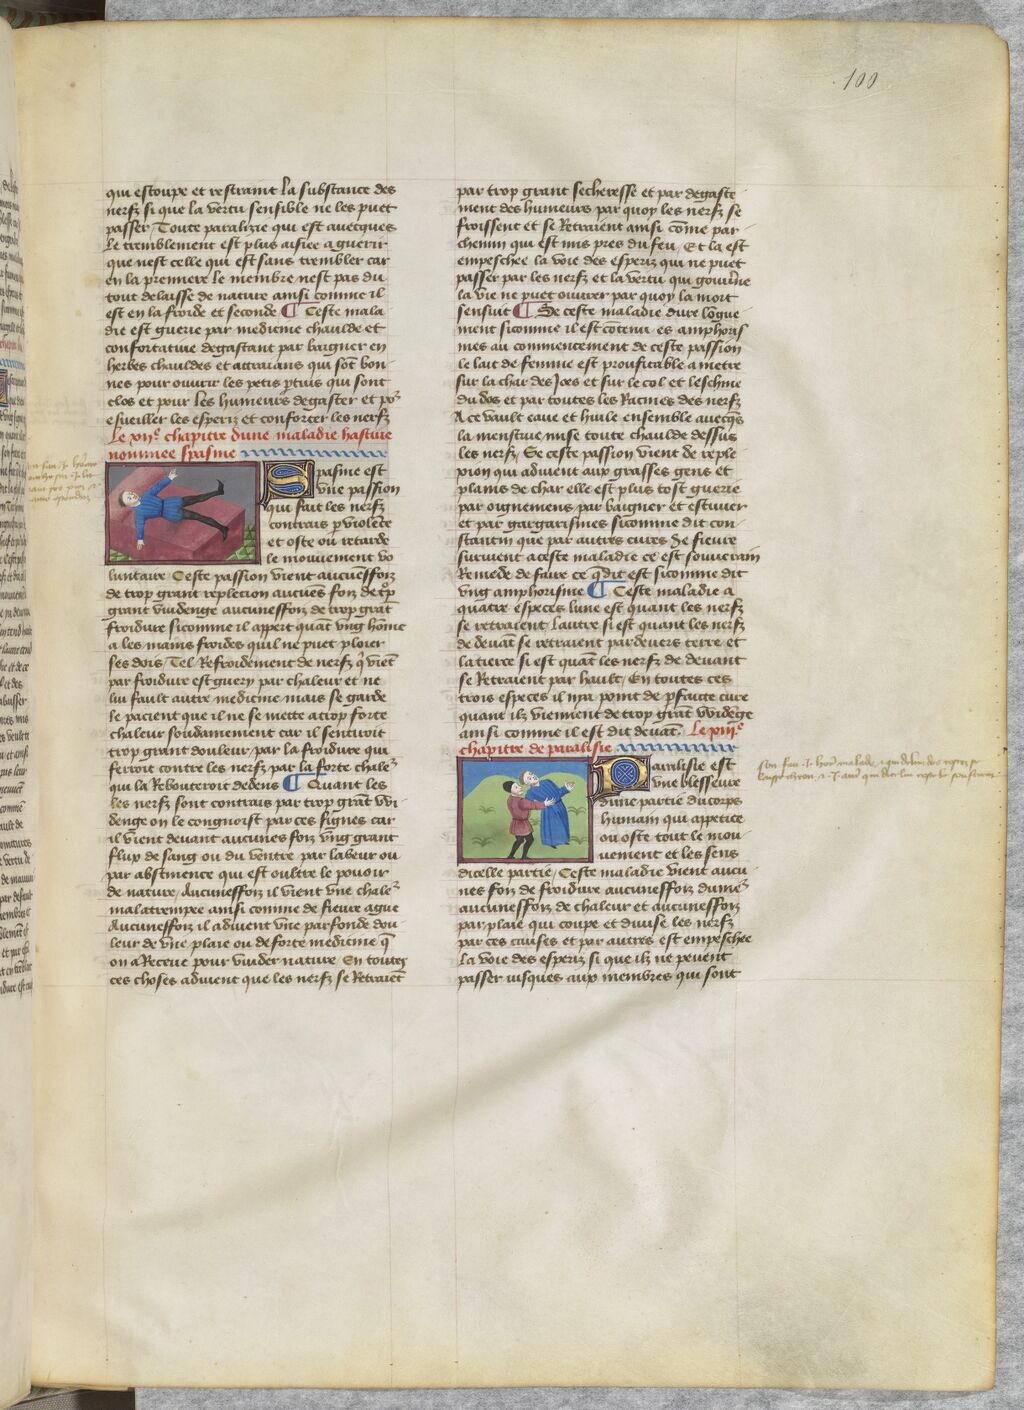 100
qui estoupe et restraint la substance des
nerfz si que la vertu sensible ne les puet
passer / Toute paralizie qui est avecques
le tremblement est plus aisiee a guerir
que nest celle qui est sans trembler car
en la premiere le membre nest pas du
tout delaisse de nature ainsi comme il
est en la froide et seconde ¶ Ceste mala
die est guerie par medicine chaulde et
confortative degastant par baigner en
herbes chauldes et attraians qui sõt bon-
nes pour ouurir les petis ptuis qui sont
clos et pour les humeurs degaster et po2
esueiller les esperiz et conforter les nerfz
Le xiie chapitre dune maladie hastiue
nommee spasme
Spasme est
vne passion
qui fait les nerfz
contrais p violẽce
et oste ou retarde
le mouuement vo
luntaire Ceste passion vient aucuneffoiz
de trop grant repletion aucunes foiz de trop
grant vuidenge aucuneffoiz de trop grãt
froidure sicomme il appert quãt vng hõme
a les mains froides quil ne puet ploier
ses dois / Tel Refroidement de nerfz q̃ viẽt
par froidure est guery par chaleur et ne
lui fault autre medicine mais se garde
le pacient que il ne se mette a trop forte
chaleur soudainement car il sentiroit
trop grant douleur / par la froidure qui
feroit contre les nerfz par la forte chale2
qui la Rebouteroit dedens ¶ Quant les
les nerfz sont contrais par trop grãt vui
denge on le congnoist par ces signes car
il vient deuant aucunes foiz vng grant
flux de sang ou du ventre par labeur ou
par abstinence qui est oultre le pouoir
de nature / Aucuneffoiz il vient vne chale2
malatrempee ainsi comme de fieure ague
Aucuneffoiz il aduient vne parfonde dou
leur de vne plaie ou de forte medicine q̃
on a Receue pour vuider nature En toutes
ces choses aduient que les nerfz se Retraiẽt
par trop grant secheresse et par degaste
ment des humeurs par quoy les nerfz se
froissent et se Retraient ainsi cõme par-
chemin qui est mis pres du feu / Et la est
empeschee la voie des esperiz qui ne puet
passer par les nerfz et la vertu qui gouuerne
la vie ne puet ouurer par quoy la mort
sensuit ¶ De ceste maladie dure lõgue
ment sicomme il est cõtenu es amphoris
mes au commencement de ceste passion
le lait de femme est prouffitable a metre
sur la char des Joes et sur le col et leschine
du dos et par toutes les Racines des nerfz
A ce vault eaue et huile ensemble auecq̃s
la menstrue mise toute chaulde dessus
les nerfz / Se ceste passion vient de reple
xion qui aduient aux grasses gens et
plains de char elle est plus tost guerie
par oignemens par baigner et estuuer
et par gargarismes sicomme dit con-
stantin que par autres cures Se fieure
suruient a ceste maladie ce est souuerain
Remede de faire ce q̃ dit est sicomme dit
vng amphorisme ¶ Ceste maladie a
quatre especes lune est quant les nerfz
se retraient lautre si est quant les nerfz
de deuãt se retraient par deuers terre et
la tierce si est quãt les nerfz de deuant
se Retraient par hault / En toutes ces
trois especes il nya point de p̃faite cure
quant ilz viennent de trop grãt vvidẽge
ainsi comme il est dit deuãt. Le xiiie
chapitre de paralisie
Paralisie est
vne blesseure
dune partie du corps
humain qui appetice
ou oste tout le mou-
uement et les sens
dicelle partie / Ceste maladie vient aucu
nes foiz de froidure aucuneffoiz dume2
aucuneffoiz de chaleur et aucuneffoiz
par plaie qui coupe et diuise les nerfz
par ces causes et par autres est empeschee
la voie des esperiz si que ilz ne peuent
passer iusques aux membres qui sont